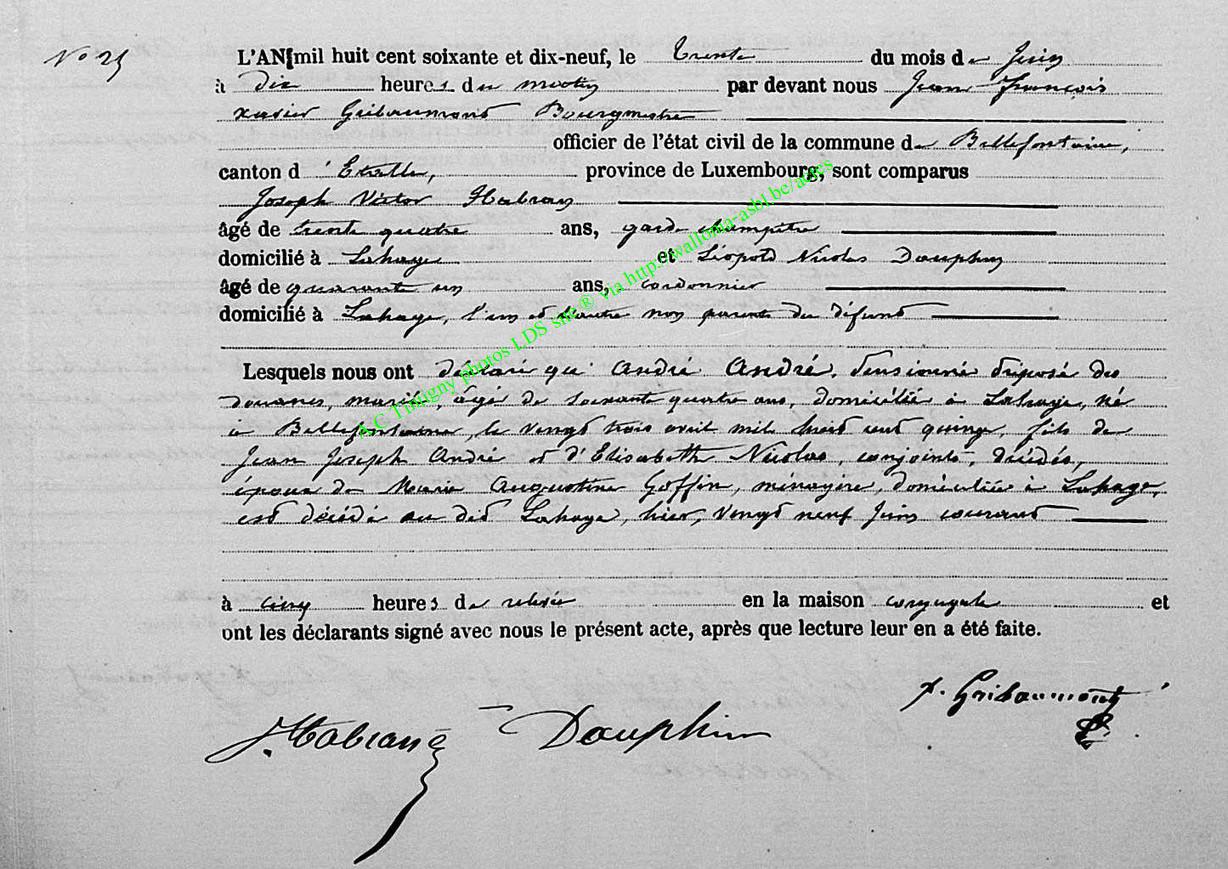 No 25
L'AN mil huit cent soixante et dix-neuf, le trente du mois de Juin
à dix heures du matin par devant nous Jean François
Xavier Gribaumont Bourgmestre
officier de l'état civil de la commune de Bellefontaine,
canton d'Etalle, province de Luxembourg, sont comparus
Joseph Victor Habran
âgé de trente quatre ans, garde champêtre
domicilié à Lahage et Léopold Nicolas Dauphin
âgé de quarante un ans, cordonnier
domicilié à Lahage, l'un et l'autre non parents du défunt
Lesquels nous ont déclaré que André André, Pensionné préposé des
douanes, marié, âgé de soixante quatre ans, domicilié à Lahage, né
à Bellefontaine, le vingt trois avril mil huit cent quinze, fils de
Jean Joseph André et d'Elisabeth Nicolas, conjoints, décédés,
époux de Marie Augustine Goffin, ménagère, domiciliée à Lahage,
est décédé au dit Lahage, hier, vingt neuf Juin courant
à cinq heures de relevée en la maison conjugale et
ont les déclarants signé avec nous le présent acte, après que lecture leur en a été faite.
J. Habran Dauphin x. Gribaumont
A C Tintigny photos LDS site ® via http://wallonia-asbl.be/actes